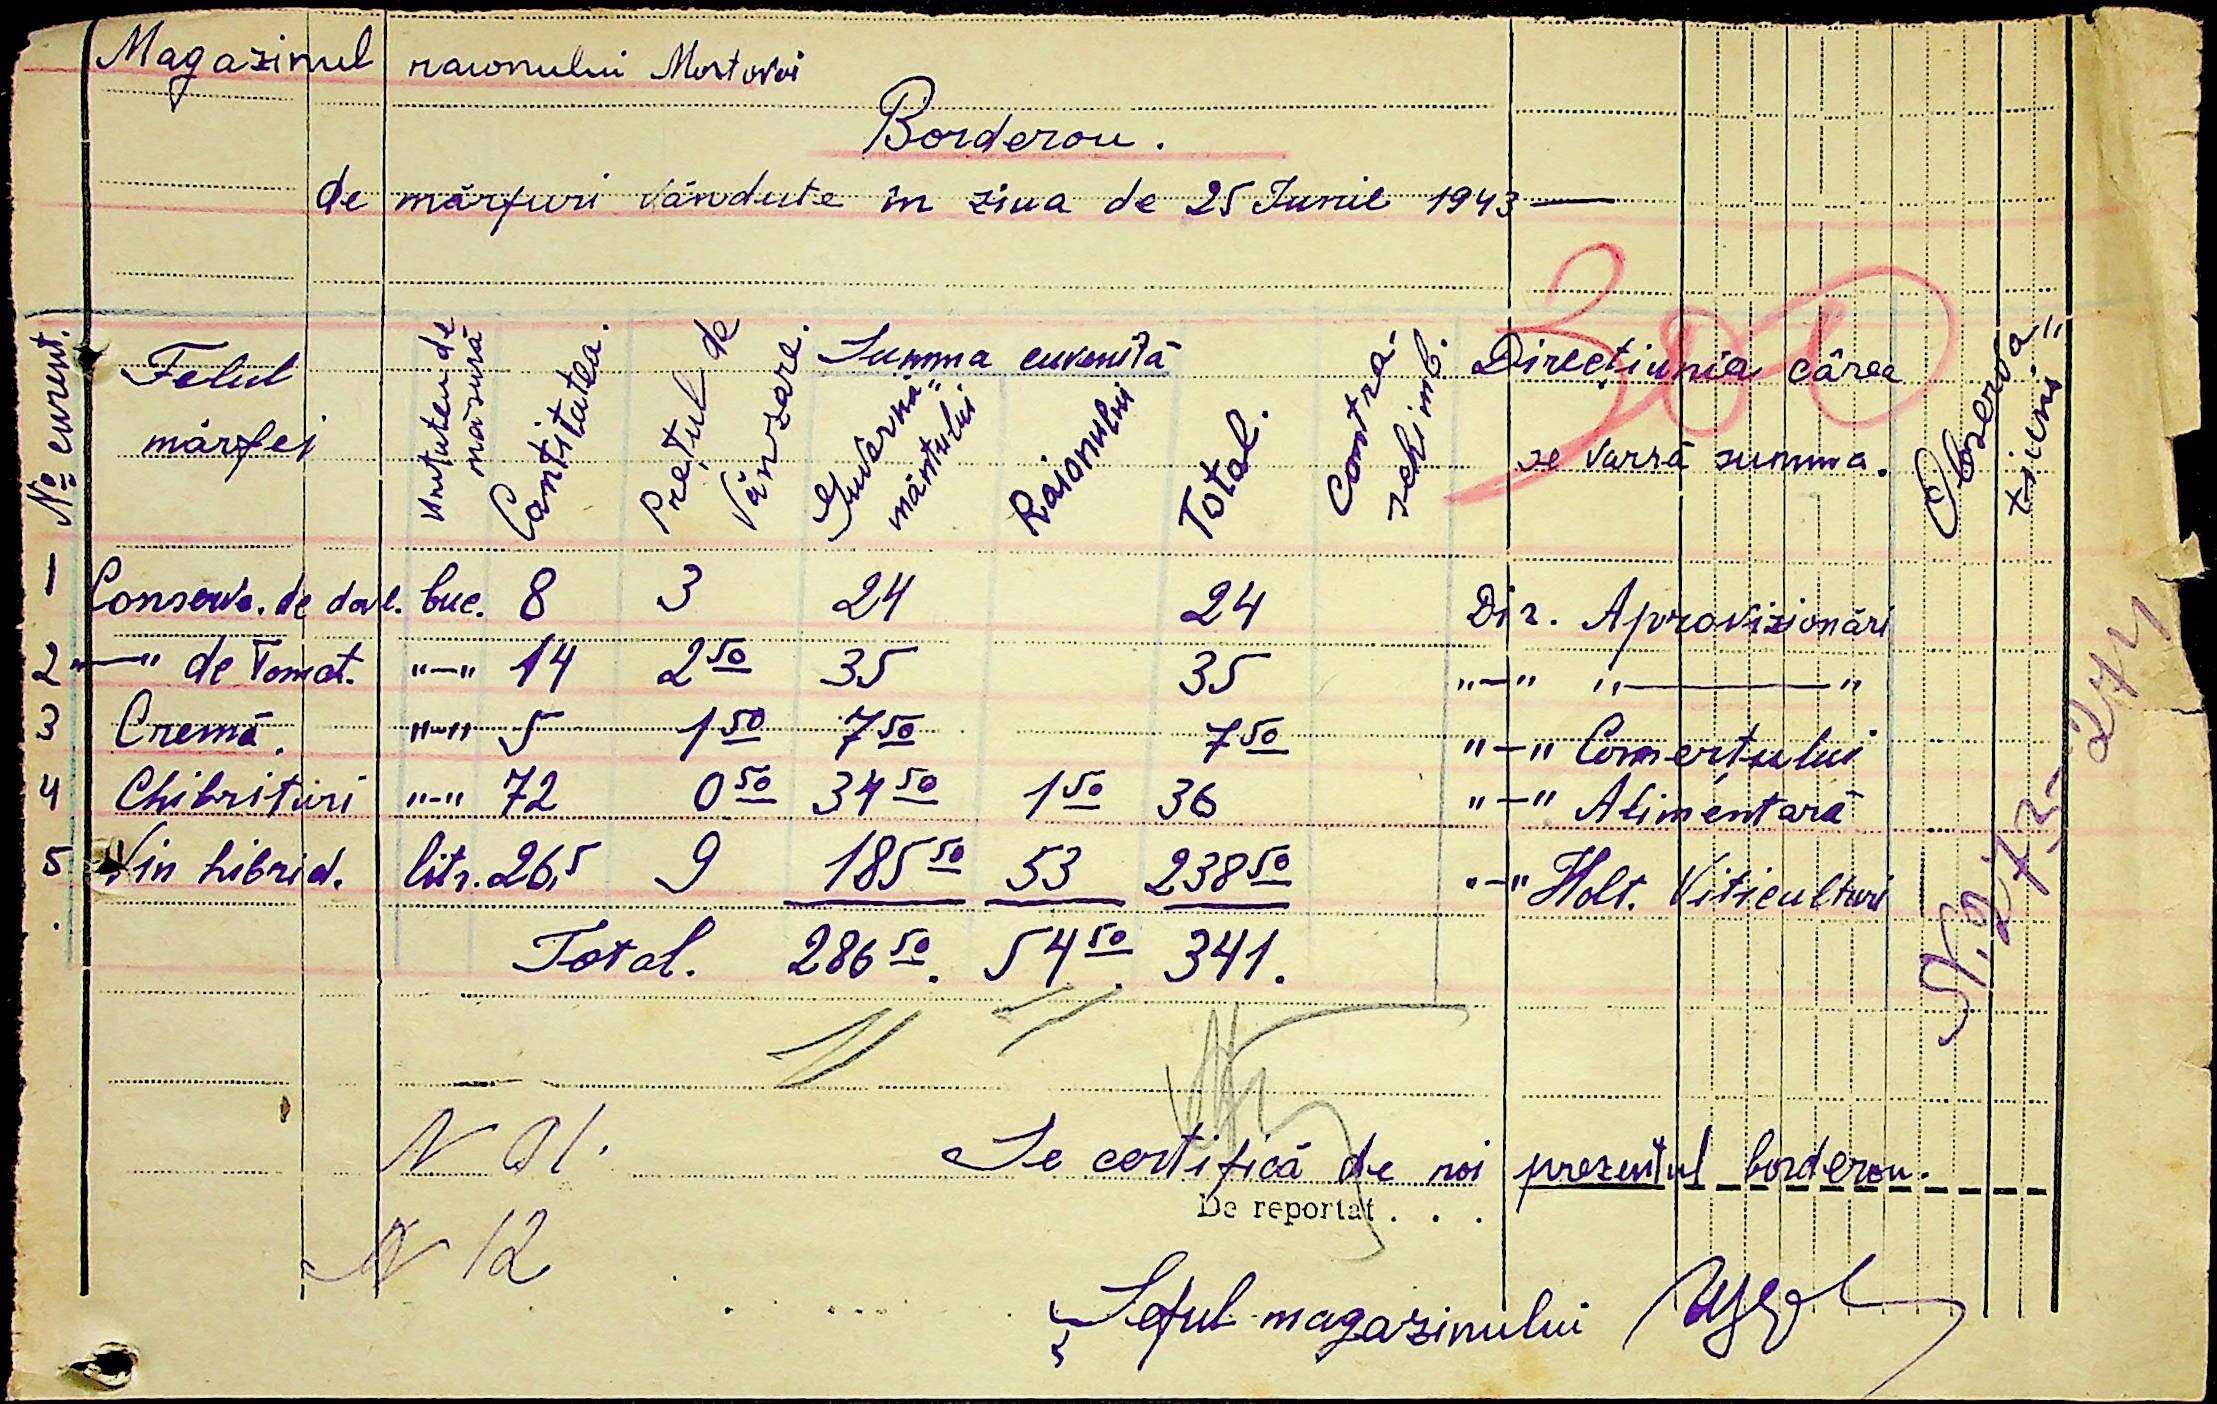 Magazinul raionului Mostovoi
Borderou.
de mărfuri vândute în ziua de 25 Iunie 1943 —
300
No curent. Felul mărfei Unitatea de măsură Cantitatea. Prețul de vânzare. Summa cuvenită Guvernă" mântului Raionului Total. Contra- schimb. Direcțiunia cărea se varsă summa. Observa" țiuni
— Conserve. de dovl. buc. 8 3 24 24 Dir. Aprovizionări
2 "—" de Tomat. "—" 14 2 50 35 35 "—" "——"
3 Cremă. "—" 5 1 50 7 50 7 50 "—" Comerțului
4 Chibrituri "—" 72 0 50 34 50 1 50 36 "—" Alimentară
5 Vin hibrid. litr. 26,5 9 185 50 53 238 50 "—" Viticulturi
Total. 286 50. 54 50. 341.
N. 273-274
N 91.
Se certifică de noi prezentul borderou.
De reportat . . .
N 12
Șeful magazinului